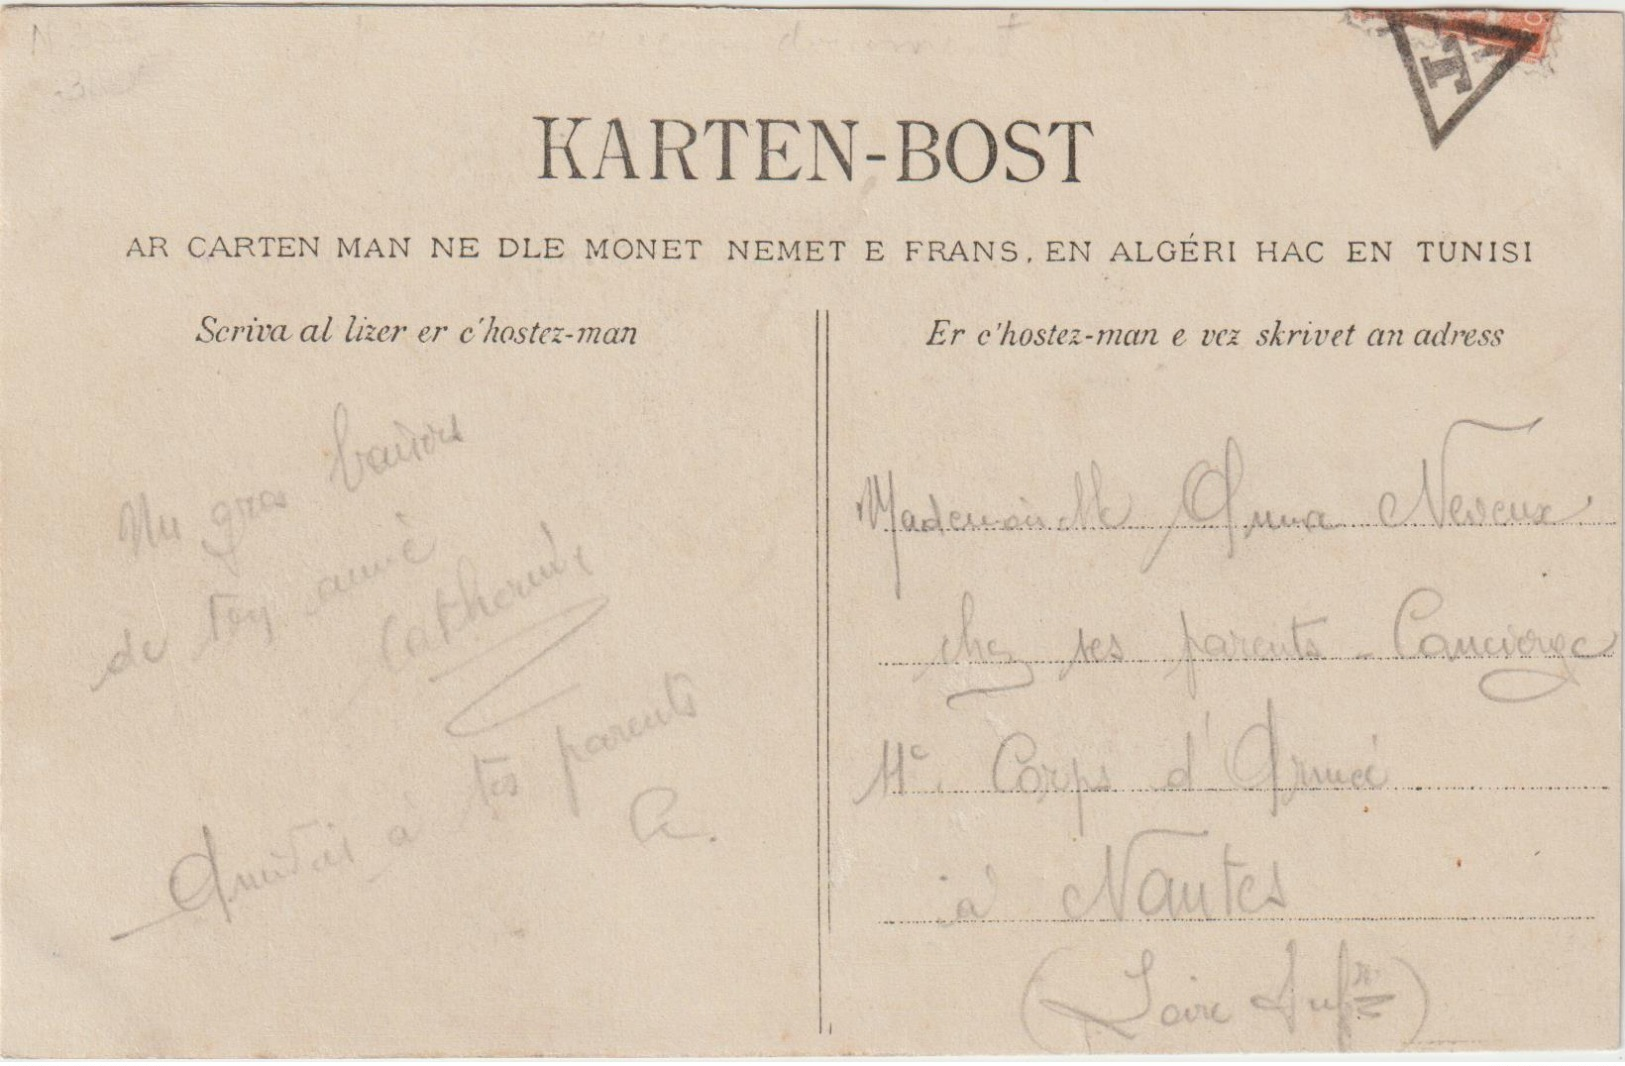 KARTEN-BOST
AR CARTEN MAN NE DLE MONET NEMET E FRANS, EN ALGÉRI HAC EN TUNISI
Scriva al lizer er c'hostez-man
Un gros baisers
de toy amie
Catherine
Amitais à tes parents
C.
Er c'hostez-man e vez skrivet an adress
Mademoiselle Anna Neveux
chez ses parents - Concierge
11e Corps d'Armée
à Nantes
(Loire Infre)
T